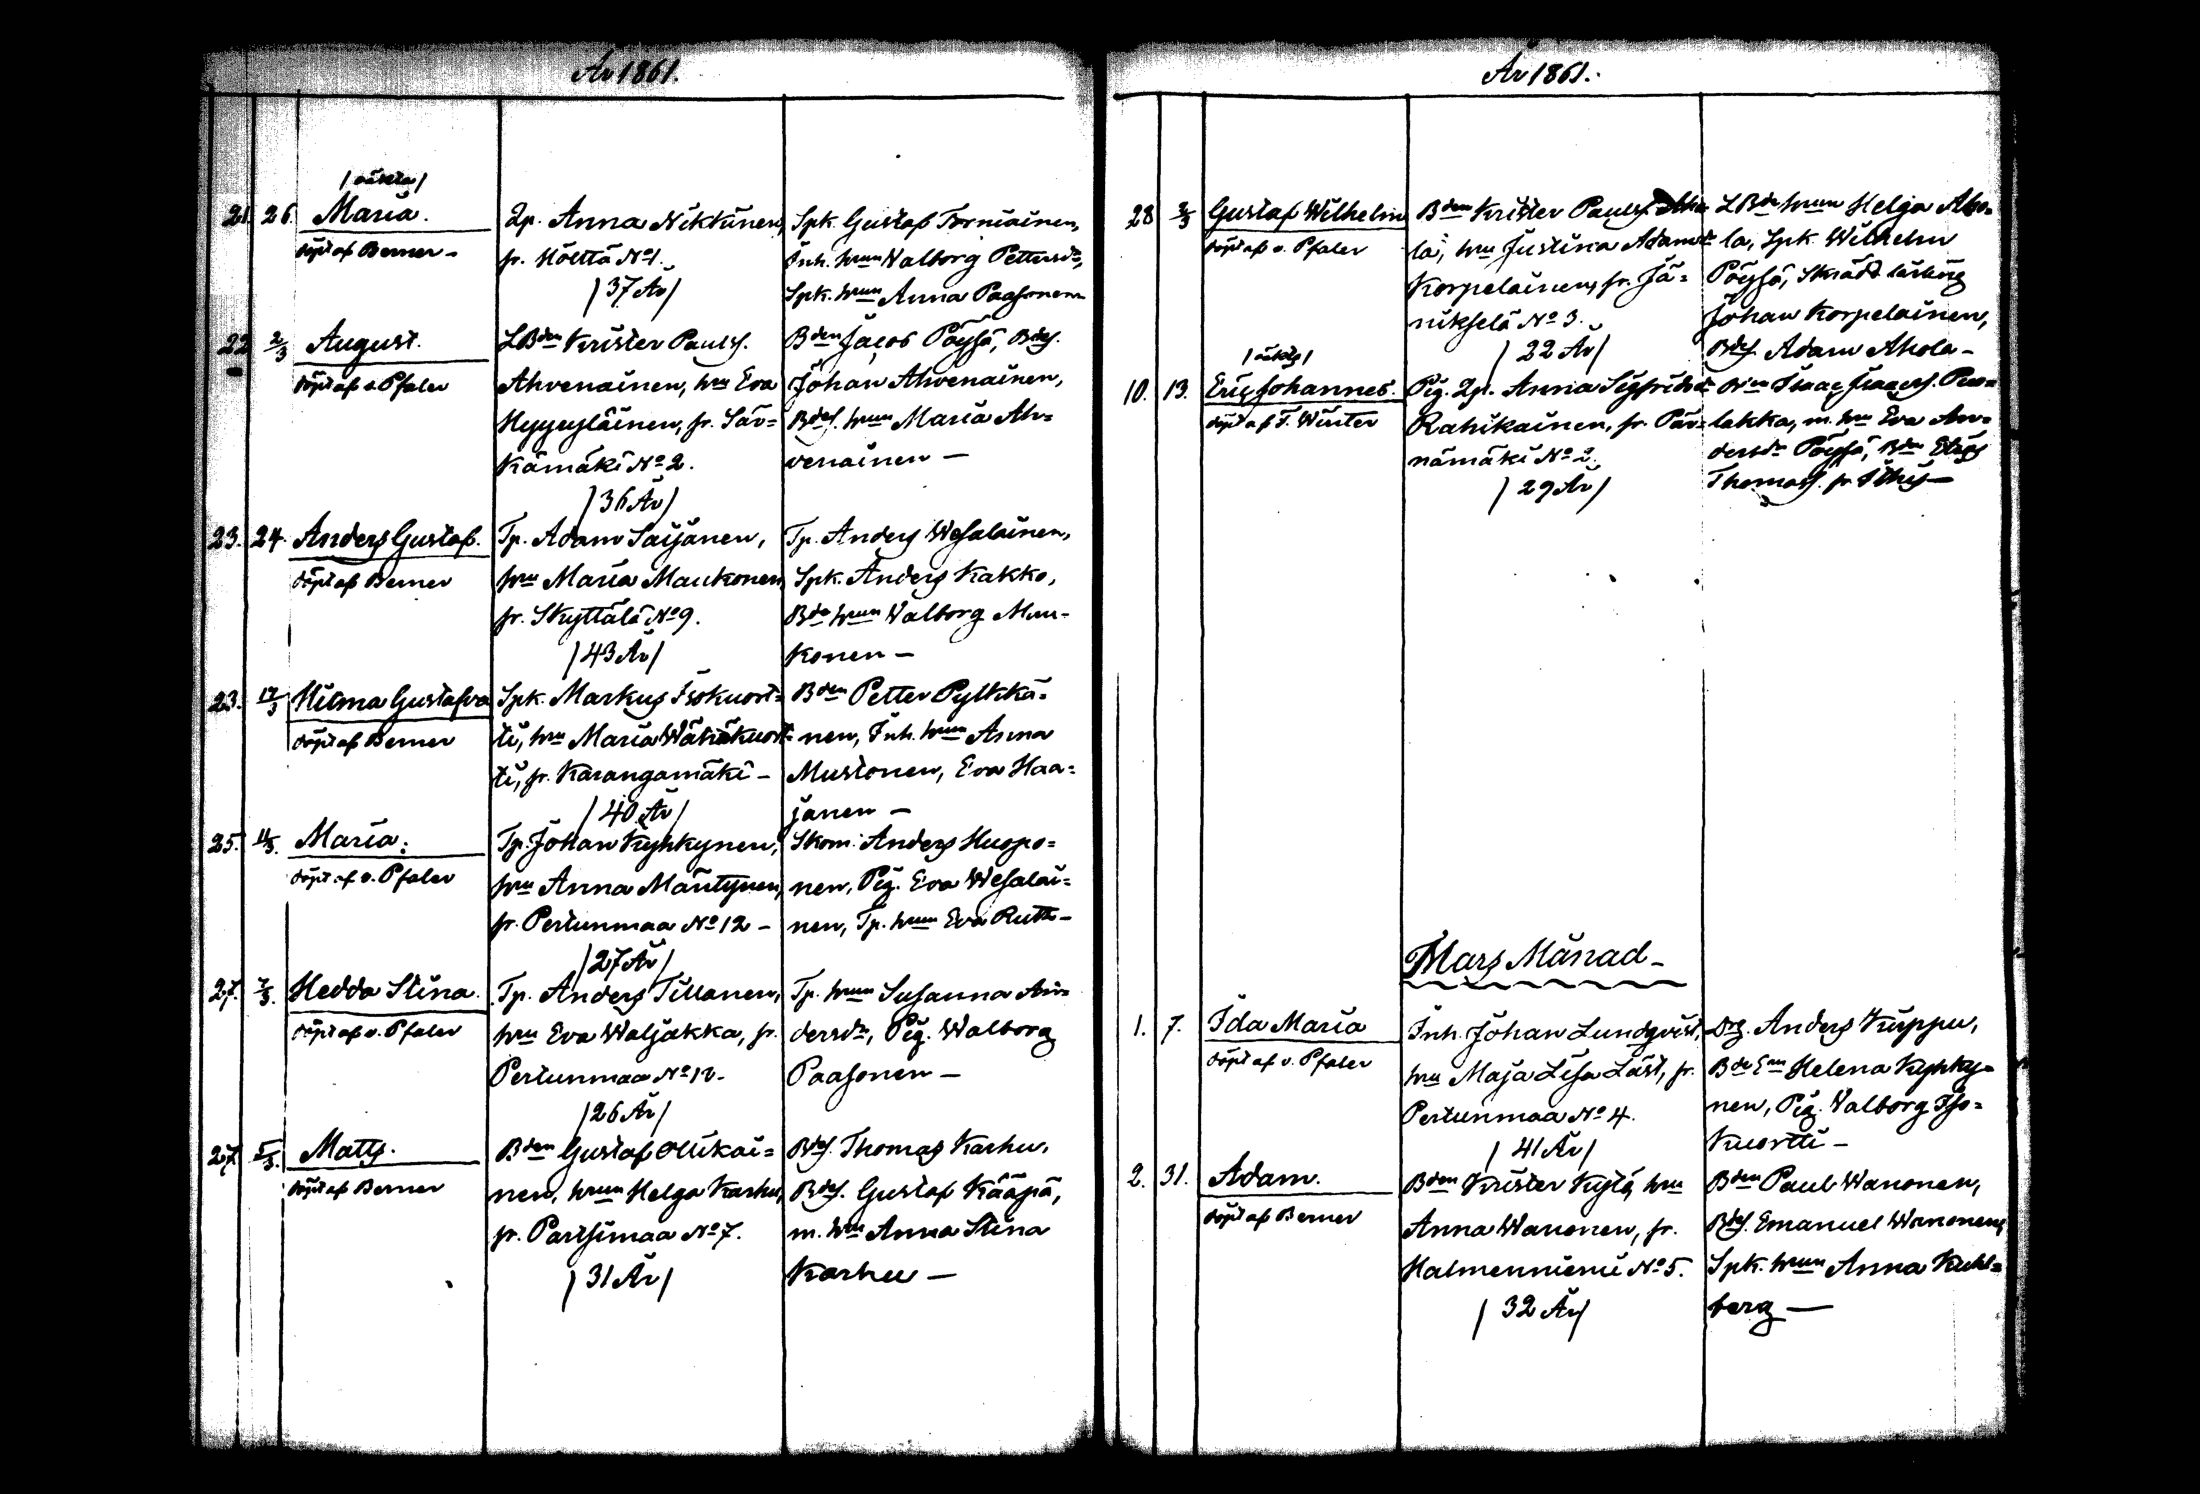 År 1861.
/oäkta/
21. 26. Maria.
döpt af Berner -
Qp. Anna Nikkinen,
fr. Hölttä No 1.
/37 År/
Spk. Gustaf Torniainen,
Inh. hrun Walborg Pettersdr,
Spk. hrun Anna Paasonen
22 2/3 August.
döpt af v. Pfaler
LBden Krister Paulss.
Ahvenainen, hru Eva
Hyyryläinen, fr. Sär=
kämäki No 2.
/36 År/
Bden Jacob Pöysä, Bdes.
Johan Ahvenainen,
Bdes. hrun Maria Ah=
venainen —
23. 24. Anders Gustaf.
döpt af Berner
Tp. Adam Saijanen,
hru Maria Maukonen
fr. Skyttälä No 9.
/43 År/
Tp. Anders Wesalainen,
Spk. Anders Kakko,
Bde hrun Walborg Mau=
konen —
23. 17/3 Hilma Gustafva
döpt af Berner
Spk. Markus Isokuort=
ti, hru Maria Wähäkuort=
ti, fr. Karangamäki —
/40 År/
Bden Petter Pylkkä=
nen, Inh. hrun Anna
Mustonen, Eva Haa=
janen —
25. Maria.
döpt af v. Pfaler
Tp. Johan Kyhkynen,
hru Anna Mäntynen,
fr. Pertunmaa No 12 —
/27 År/
Skom. Anders Huopo=
nen, Pig. Eva Wesalai=
nen, Tp. hrun Eva Ruth —
27. Hedda Stina.
döpt af v. Pfaler
Tp. Anders Tillanen,
hru Eva Waljakka, fr.
Pertunmaa No 12.
/26 År/
Tp. hrun Susanna An=
dersdr, Pig. Walborg
Paasonen —
27. 5/3. Matts.
döpt af Berner
Bden Gustaf Ollikai=
nen, hrun Helga Karhu,
fr. Partsimaa No 7.
/31 År/
Bdes. Thomas Karhu,
Bdes. Gustaf Kääpä,
m. hru Anna Stina
Karhu —
År 1861.
28 Gustaf Wilhelm
döpt af v. Pfaler
Bden Krister Paulss. Aho=
la, hru Justina Adamsdr
Korpelainen, fr. Jä=
nikselä No 3.
/22 År/
LBde hrun Helga Aho=
la, Spk. Wilhelm
Pöysä, Skrädd. lärling
Johan Korpelainen,
Bdes. Adam Ahola —
/oäkta/
10. 13. Eric Johannes.
döpt af T. Winter
Pig. Qp. Anna Sigfridsdr
Rahikainen, fr. Pär=
nämäki No 2.
/29 År/
Isaac Isacss. Puo=
lakka, m. hru Eva An=
dersdr Pöysä, Bden
Thomass. fr.
Mars Månad —
1. 7. Ida Maria
döpt af v. Pfaler
Inh. Johan Lundqvist,
hru Maja Lisa Läst, fr.
Pertunmaa No 4.
/41 År/
Drg. Anders Kuppu,
Bde Em Helena Kyhky=
nen, Pig. Walborg Iso=
kuortti —
2. 31. Adam.
döpt af Berner
Bden Krister Kylä, hru
Anna Wanonen, fr.
Halmenniemi No 5.
/32 År/
Bden Paul Wanonen,
Bdes. Emanuel Wanonen,
Spk. hrun Anna Kuhl=
berg —